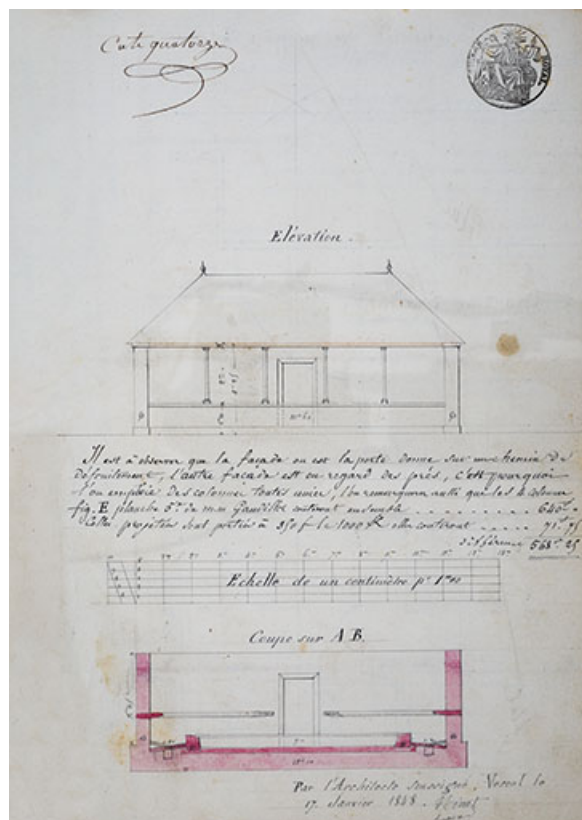 Cote quatorze
ROYAL
Elévation.
Il est à observer que la façade ou est la porte donne sur un chemin de
défruitement, l'autre façade est en regard des prés, c'est pourquoi
l'on emploie des colonnes toutes unies, l'on remarquera aussi que les 6 colonnes
fig. E planche 5e de mm Gandillot content ensemble . . . . . 640f "
Celles projetées sont portées à 350f le 1000 K elles content . . . . 71f 75
différence 568f 25
Echelle de un centimètre pr 1m
Coupe sur A B.
Par l'Architecte soussigné, Vercel le
17 Janvier 1848.